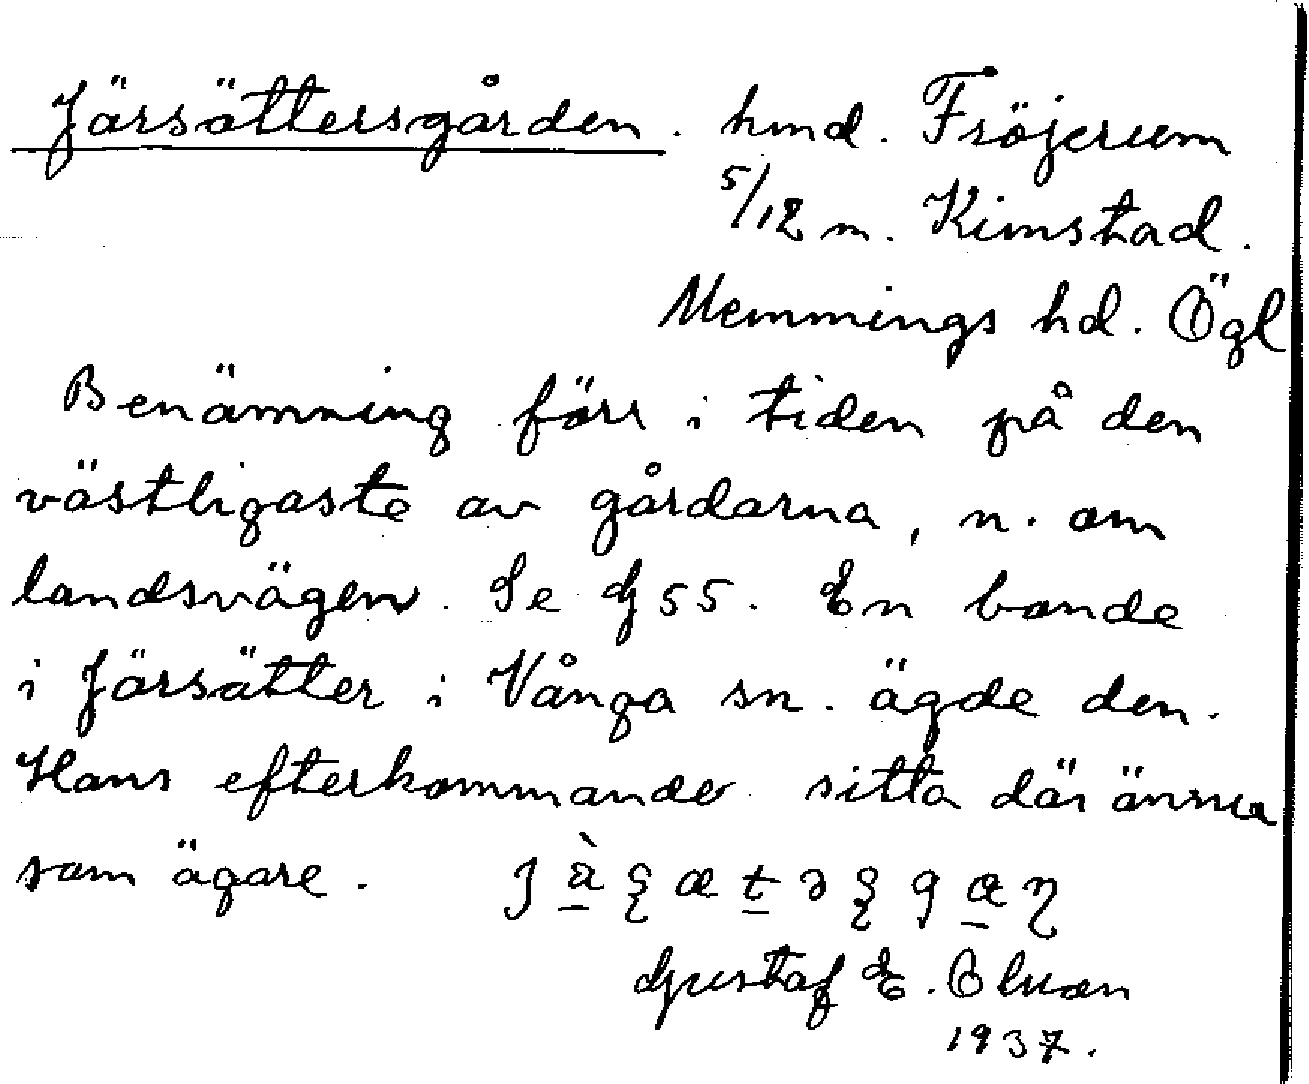 Järsättersgården. hmd. Fröjerum
5/12 m. Kimstad.
Memmings hd. Ögl
Benämning förr i tiden på den
västligaste av gårdarna, n. om
landsvägen. Se G 55. En bonde
i Järsätter i Vånga sn. ägde den.
Hans efterkommande sitta där ännu
som ägare.
Gustaf E.
1937.